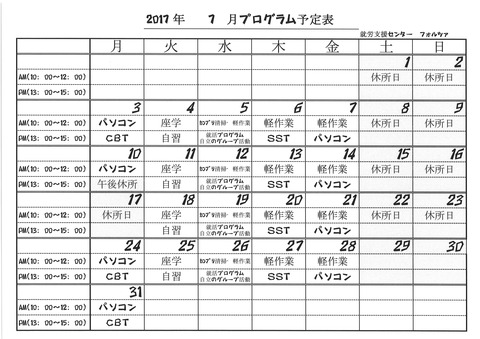 2017 年 7 月プログラム予定表
就労支援センター フォルツァ
月 火 水 木 金 土 日
1 2
AM(10：00～12：00) 休所日 休所日
PM(13：00～15：00)
3 4 5 6 7 8 9
AM(10：00～12：00) パソコン 座学 カンプリ清掃・軽作業 軽作業 軽作業 休所日 休所日
PM(13：00～15：00) CBT 自習 就活プログラム 自立のグループ活動 SST パソコン
10 11 12 13 14 15 16
AM(10：00～12：00) パソコン 座学 カンプリ清掃・軽作業 軽作業 軽作業 休所日 休所日
PM(13：00～15：00) 午後休所 自習 就活プログラム 自立のグループ活動 SST パソコン
17 18 19 20 21 22 23
AM(10：00～12：00) 休所日 座学 カンプリ清掃・軽作業 軽作業 軽作業 休所日 休所日
PM(13：00～15：00) 自習 就活プログラム 自立のグループ活動 SST パソコン
24 25 26 27 28 29 30
AM(10：00～12：00) パソコン 座学 カンプリ清掃・軽作業 軽作業 軽作業
PM(13：00～15：00) CBT 自習 就活プログラム 自立のグループ活動 SST パソコン
31
AM(10：00～12：00) パソコン
PM(13：00～15：00) CBT